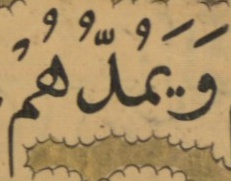 وَيَمُدُّهُمْ